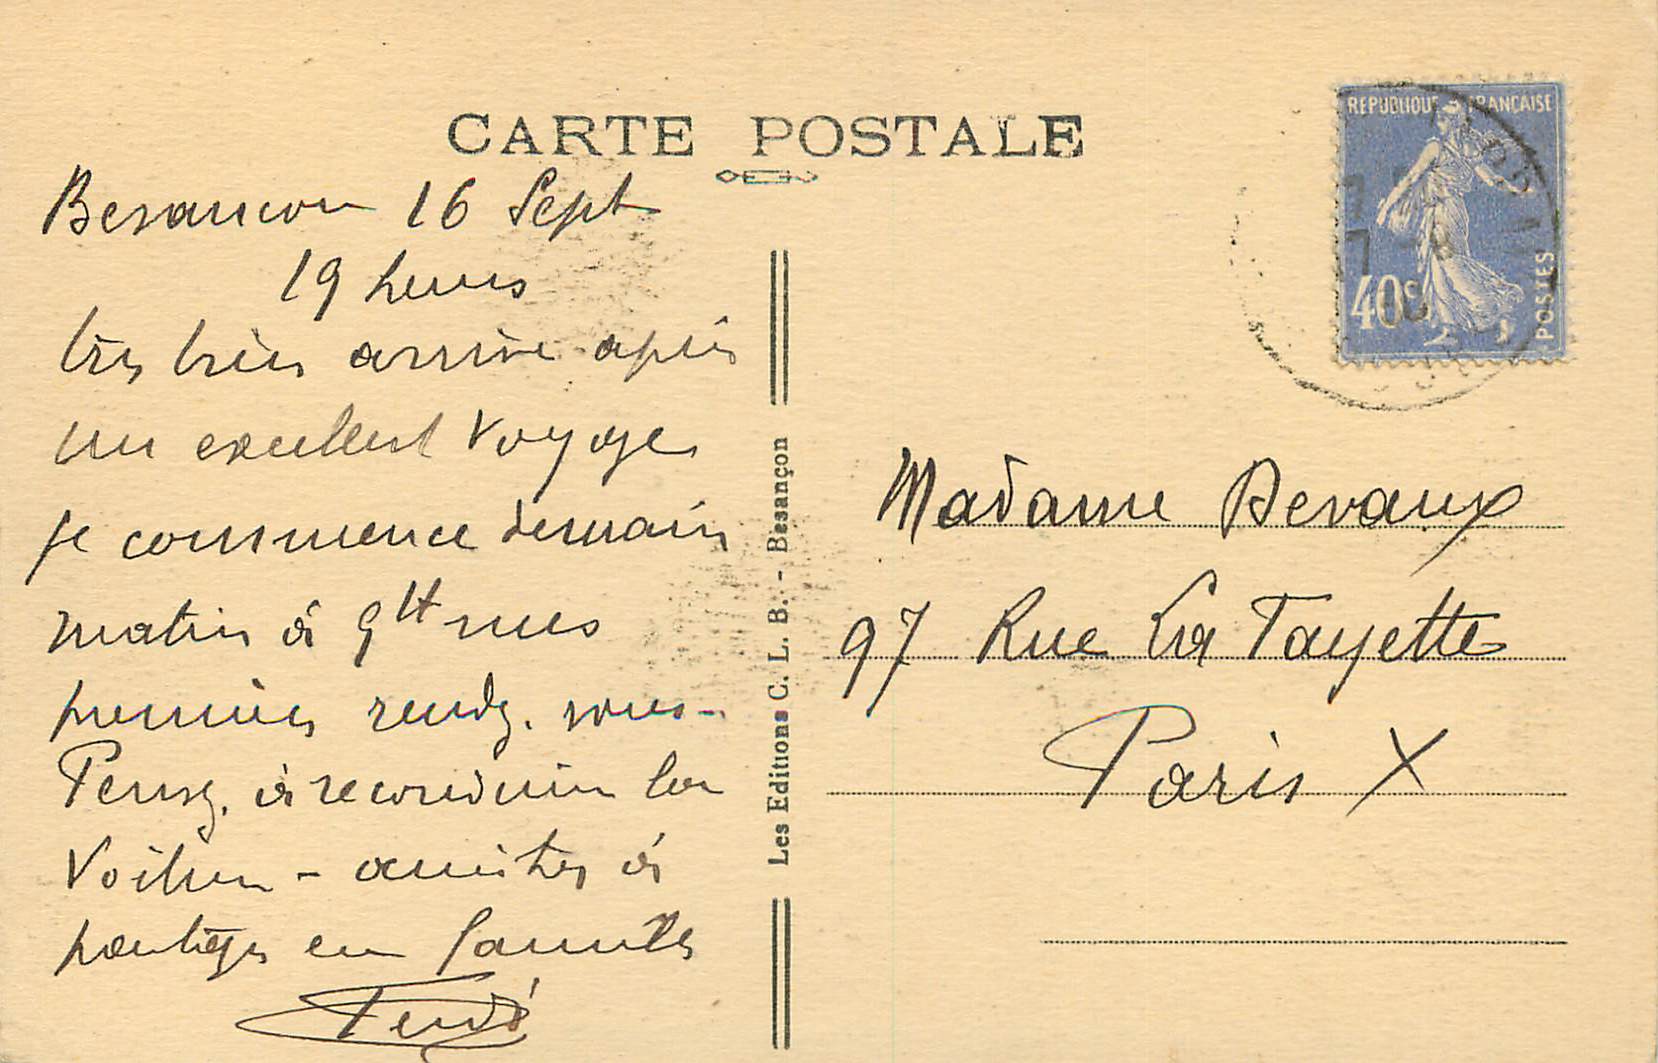 CARTE POSTALE
Besancon 16 Sept
19 heures
très bien arrivé après
un excellent voyage
je commence demain
matin à 9H mes
premiers rendz. vous -
à reconduire la
Voiture - amitiés à
partager en famille
Ferdé
Les Editions C. L. B. - Besançon
REPUBLIQUE FRANÇAISE
40c
POSTES
Madame Devaux
97 Rue La Fayette
Paris X